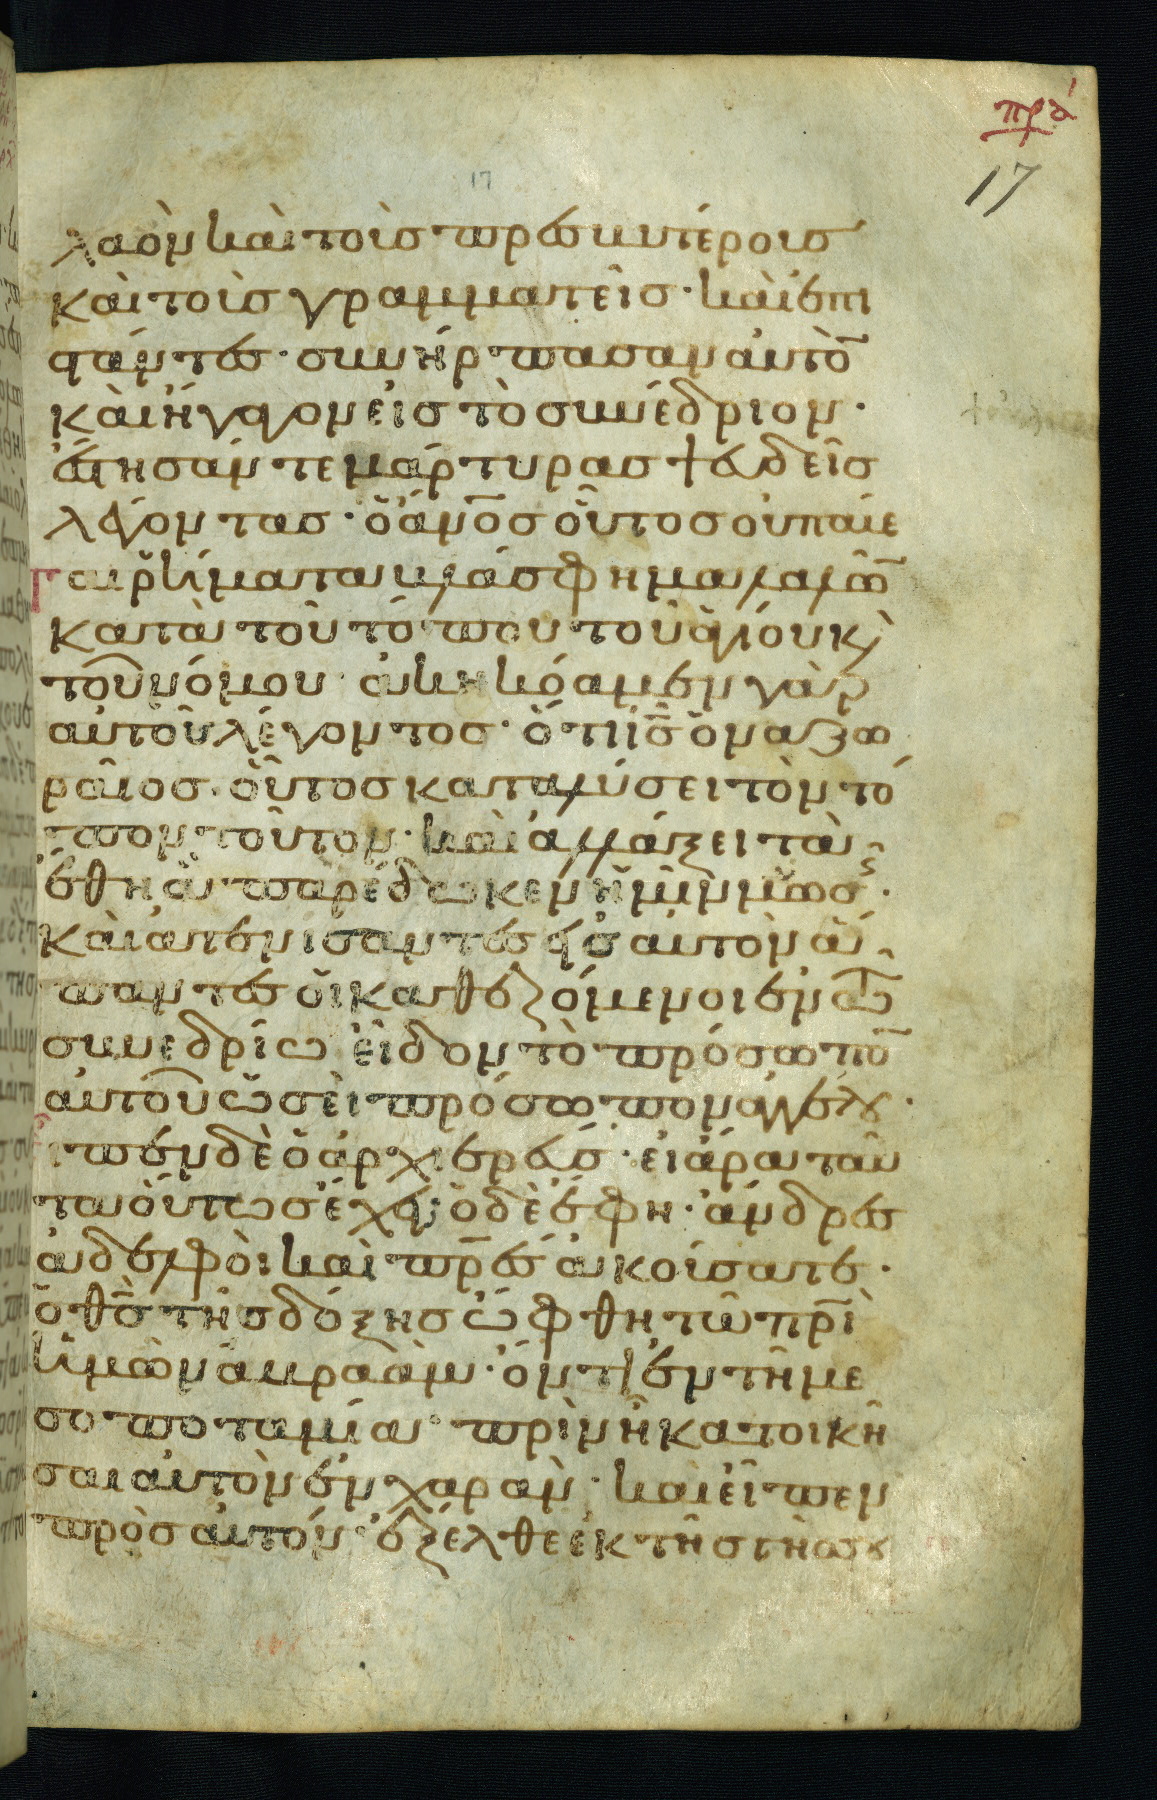 πρά
17
17
λαὸν καὶ τοὺς πρεσβυτέροις
καὶ τοὺς γραμματεῖς · καὶ ἐπι
στάντες · συνήρπασαν αὐτὸ̅
καὶ ἤγαγον εἰς τὸ συνέδριον ·
ἔστησάν τε μάρτυρας ψευδεῖς
λέγοντας · ὁ ἀν̅ο̅ς οὗτος οὐ παύε
ται ῥήματα βλάσφημα λαλῶ̅
κατὰ τοῦ τόπου τοῦ ἁγίου κ̀
τοῦ νόμου · ἀκηκόαμεν γὰρ
αὐτοῦ λέγοντος · ὅτι ι̅ς̅ ὁ ναζω
ραῖος · οὗτος καταλύσει τὸν τό
πον τοῦτον · καὶ ἀλλάξει τὰ
ἔθη ἃ παρέδωκεν ἡμῖν μωσῆς ·
καὶ ἀτενίσαντες εἰς αὐτὸν ἅ
παντες οἱ καθεζόμενοι ἐν τῶ
συνεδρίω εἶδον τὸ πρόσωπο̅
αὐτοῦ ὡσεὶ πρόσωπον ἀγγέλου ·
εἶπεν δὲ ὁ ἀρχιερεύς · εἰ ἄρα ταῦ
τα οὕτως ἔχει; ὁ δὲ ἔφη · ἄνδρες
ἀδελφοὶ καὶ π̅ρ̅ες ἀκούσατε ·
ὁ θ̅ς̅ τῆς δόξης ὤφθη τῶ π̅ρ̅ὶ
ἡμῶν ἀβραὰμ · ὄντι ἐν τῆ με
σοποταμία πρὶν ἢ κατοικῆ
σαι αὐτὸν ἐν χαρὰν · καὶ εἶπεν
πρὸς αὐτόν ἔξελθε ἐκ τῆς γῆς σου